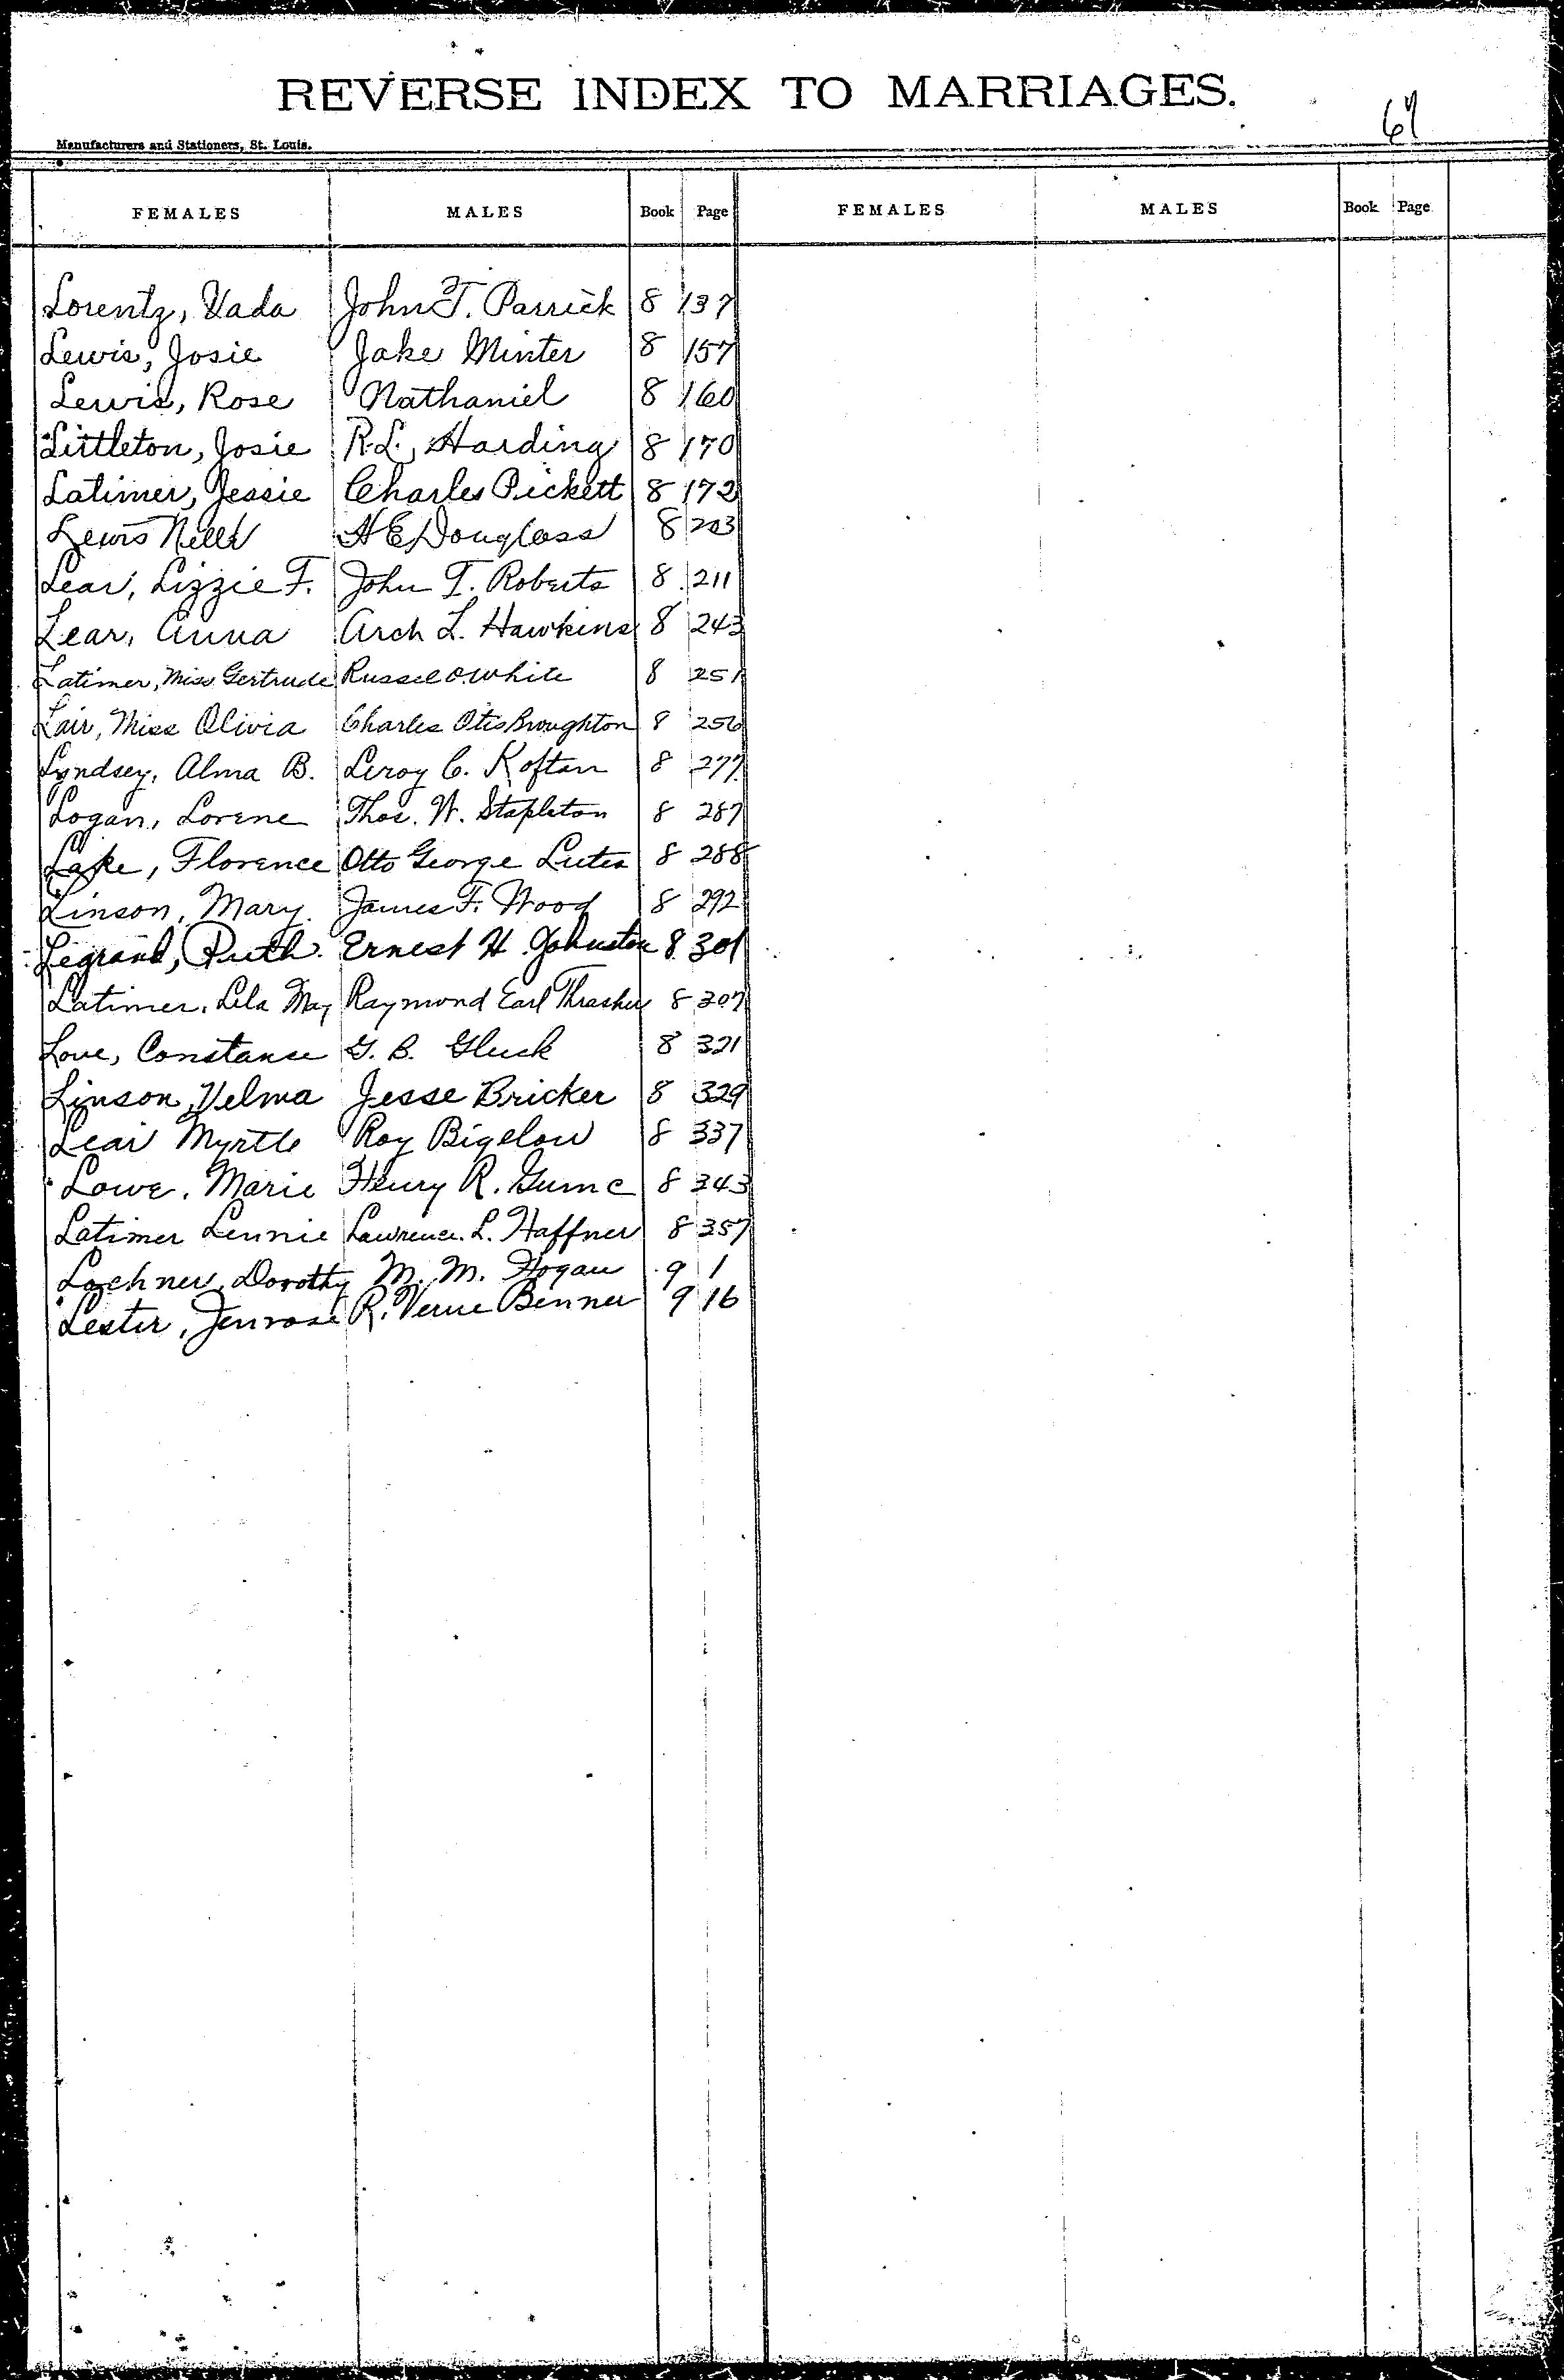 REVERSE INDEX TO MARRIAGES.
67
Manufacturers and Stationers, St. Louis.
FEMALES MALES Book Page FEMALES MALES Book Page
Lorentz, Vada John T. Parrick 8 137
Lewis, Josie Jake Minter 8 157
Lewis, Rose Nathaniel 8 160
Littleton, Josie R.L. Harding 8 170
Latimer, Jessie Charles Pickett 8 172
Lewis Nelle H E Douglass 8 203
Lear, Lizzie F. John T. Roberts 8 211
Lear, Anna Arch L. Hawkins 8 243
Latimer, Miss Gertrude Russel O. White 8 251
Lair, Miss Olivia Charles Otis Broughton 8 256
Lyndsey, Alma B. Leroy C. Koftan 8 277
Logan, Lorene Thos. W. Stapleton 8 287
Lake, Florence Otto George Lutes 8 288
Linson, Mary. James F. Wood 8 292
Legrand, Ruth. Ernest H. Johnston 8 301
Latimer, Lela May Raymond Earl Thrasher 8 307
Love, Constance G. B. Gluck 8 321
Linson, Velma Jesse Bricker 8 329
Lear Myrtle Roy Bigelow 8 337
Lowe, Marie Henry R. 8 343
Latimer Lennie Lawrence L. Haffner 8 357
Lochner, Dorothy M. M. Hogan 9 1
Lester, Jenrose R. Verne Benner 9 16